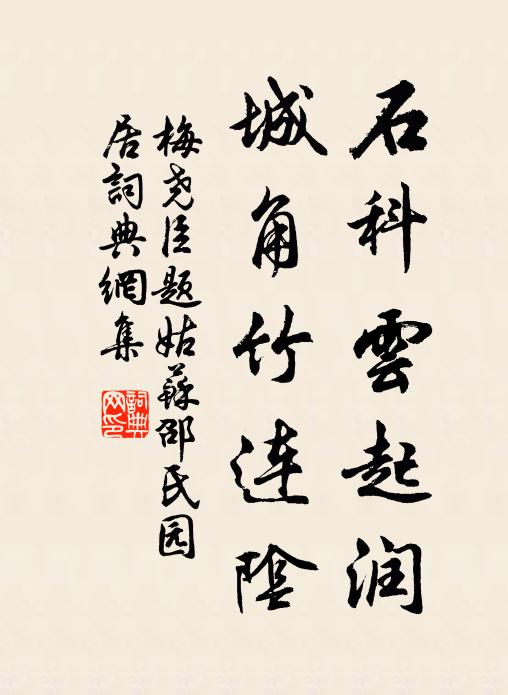 石科雲起润
城角竹连陰
梅尧臣题姑蘇邵氏园
居詞典網集
詞典
网印